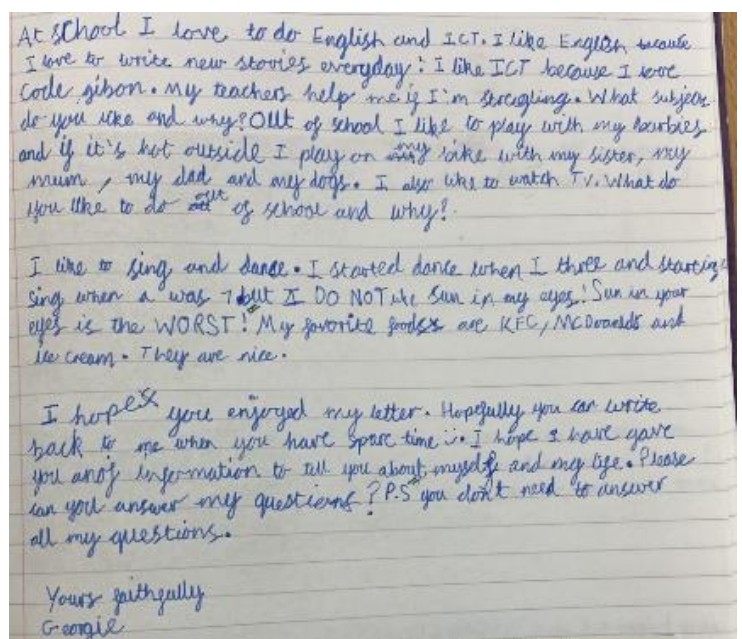 At school I love to do English and ICT. I like English because
I love to write new stories everyday! I like ICT because I love
Code gibon. My teachers help me if I'm strugling. What subject
do you like and why? Out of school I like to play with my barbies
and if it's hot outside I play on my bike with my sister, my
mum, my dad and my dogs. I also like to watch TV. What do
you like to do out of school and why?
I like to sing and dance. I started dance when I three and starting
sing when a was 7 but I DO NOT like sun in my eyes! Sun in your
eyes is the WORST! My favorite foods are KFC, McDonalds and
ice cream. They are nice.
I hope you enjoyed my letter. Hopefully you can write
back to me when you have spare time :). I hope I have gave
you anof information to tell you about myself and my life. Please
can you answer my questions? P.S you don't need to answer
all my questions.
Yours faithfully
Georgie